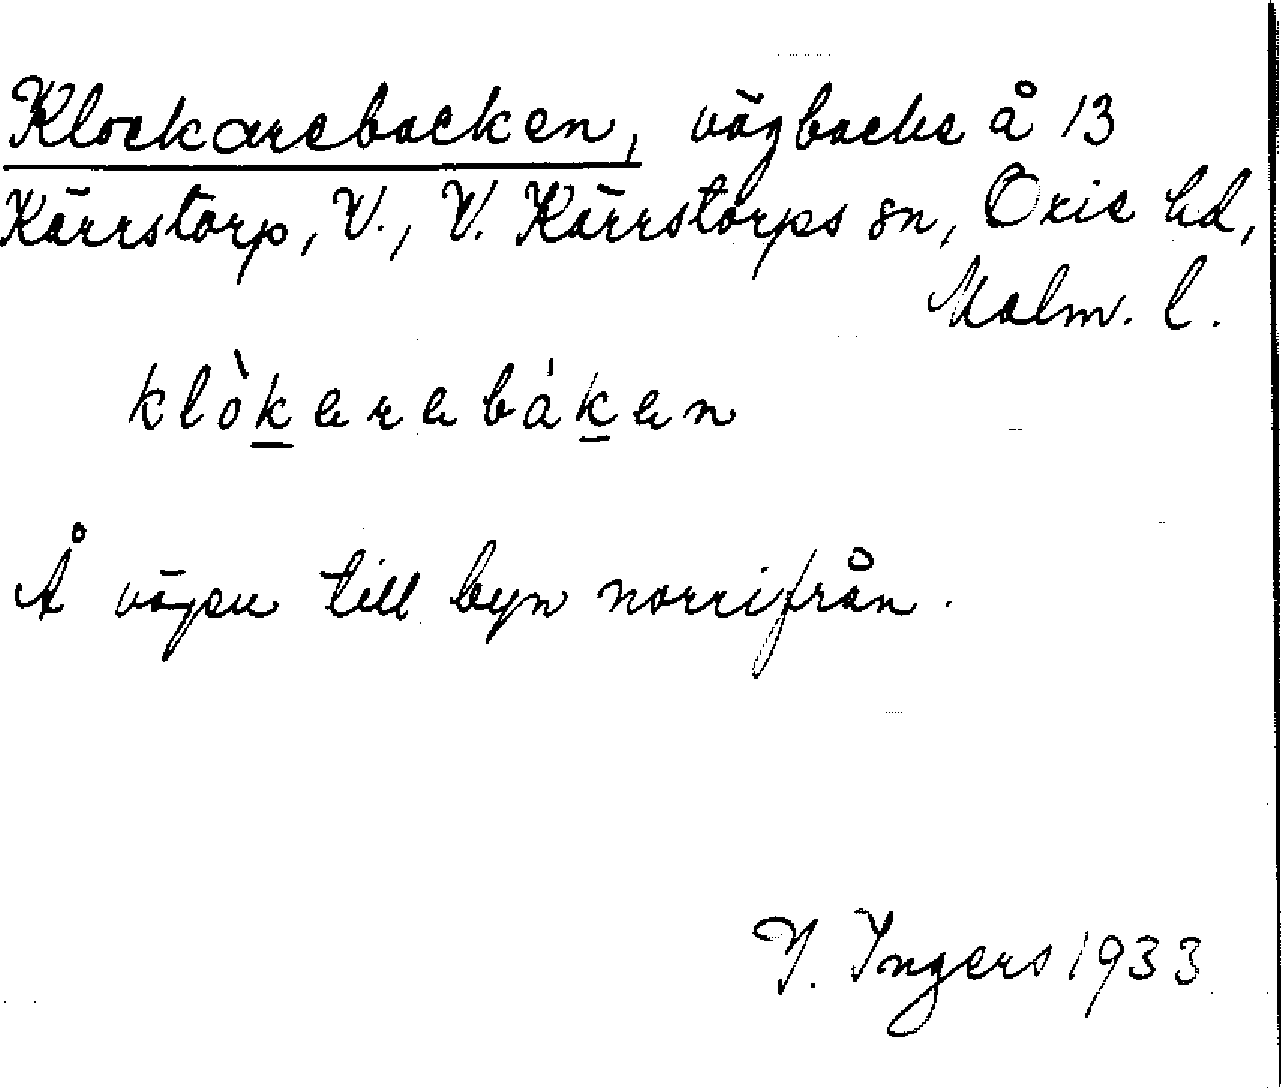 Klockarebacken, vägbacke å 13
Kärrstorp, V., V. Kärrstorps sn, Oxie hd,
Malm. l.
klòkarabákan
Å vägen till byn norrifrån.
I. Ingers 1933